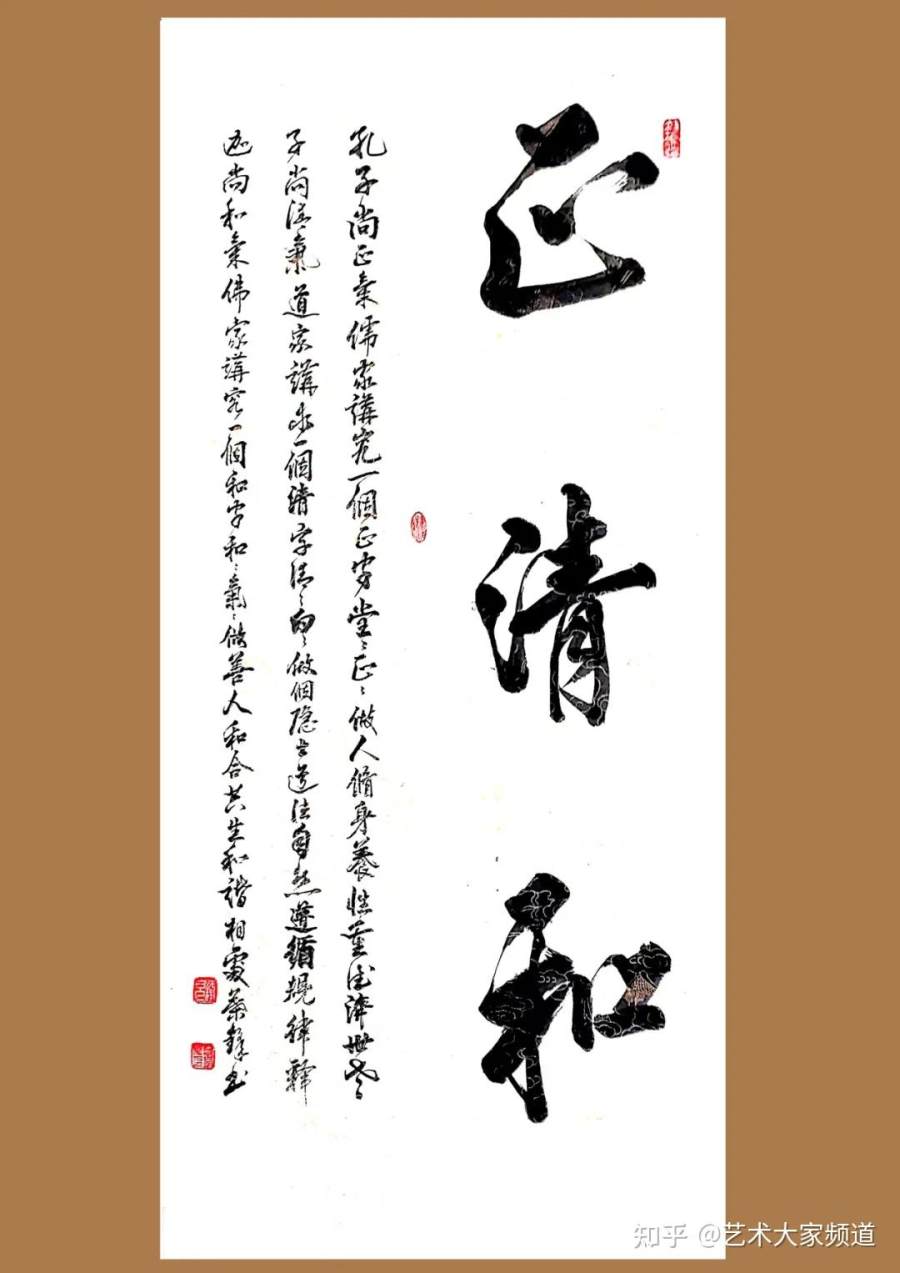 正清和
孔子尚正氣儒家講究一個正字堂堂正正做人脩身養性重德濟世老
子尚清氣道家講求一個清字清清白白做個隐士道法自然遵循規律釋
迦尚和氣佛家講究一個和字和和氣氣做善人和合共生和諧相處
知乎 @艺术大家频道